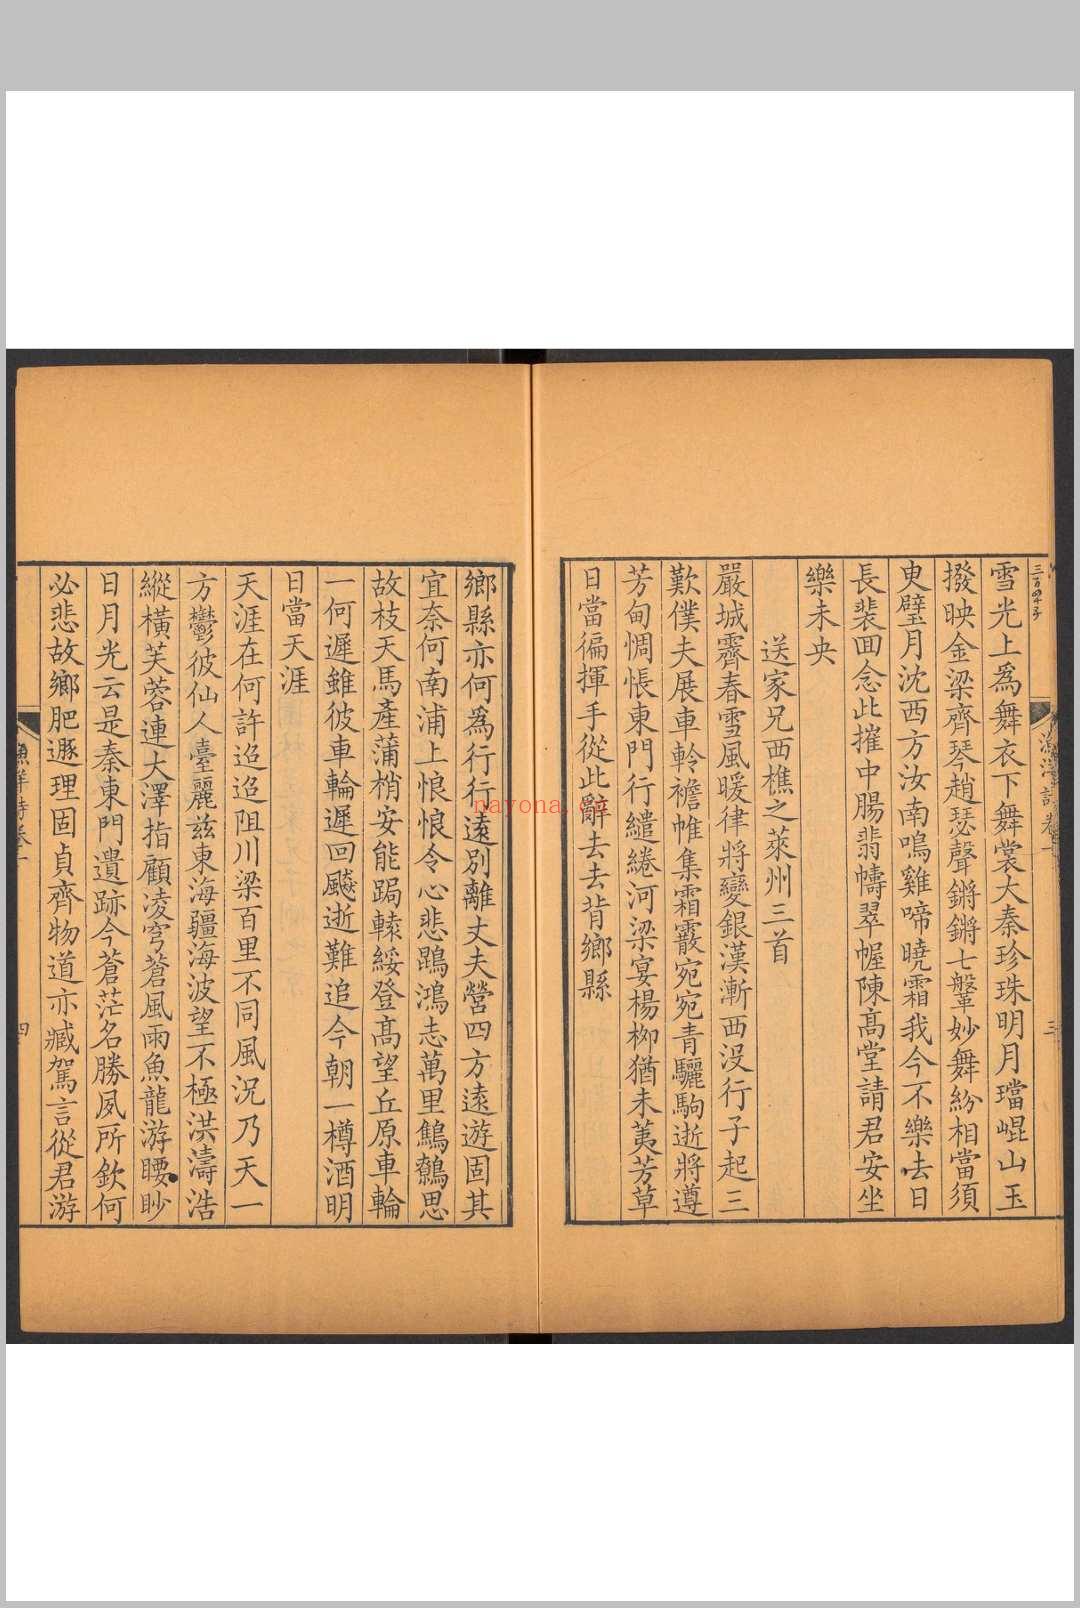 三百四十字
雪光上爲舞衣下舞裳大秦珍珠明月璫崐山玉
撥映金梁齊琴趙瑟聲鏘鏘七鞶妙舞紛相當須
臾璧月沈西方汝南鳴雞啼曉霜我今不樂去日
長裴回念此摧中腸翡幬翠幄陳高堂請君安坐
樂未央
送家兄西樵之萊州三首
嚴城霽春雪風暖律將變銀漢漸西没行子起三
歎僕夫展車軨襜帷集霜霰宛宛青驪駒逝將遵
芳甸惆悵東門行繾綣河梁宴楊桺猶未荑芳草
日當徧揮手從此辭去去背鄉縣
三
鄉縣亦何爲行行遠别離丈夫營四方遠遊固其
宜奈何南浦上悢悢令心悲鵾鴻志萬里鷦鷯思
故枝天馬產蒲梢安能跼轅綏登高望丘原車輪
一何遲雖彼車輪遲回飈逝難追今朝一樽酒明
日當天涯
天涯在何許迢迢阻川梁百里不同風況乃天一
方鬱彼仙人臺麗兹東海疆海波望不極洪濤浩
縱橫芙蓉連大澤指顧凌穹蒼風雨魚龍游瞍眇
日月光云是秦東門遺跡今蒼茫名勝夙所欽何
必悲故鄉肥遯理固貞齊物道亦臧駕言從君游
漁洋詩卷一
四
nayona.cn